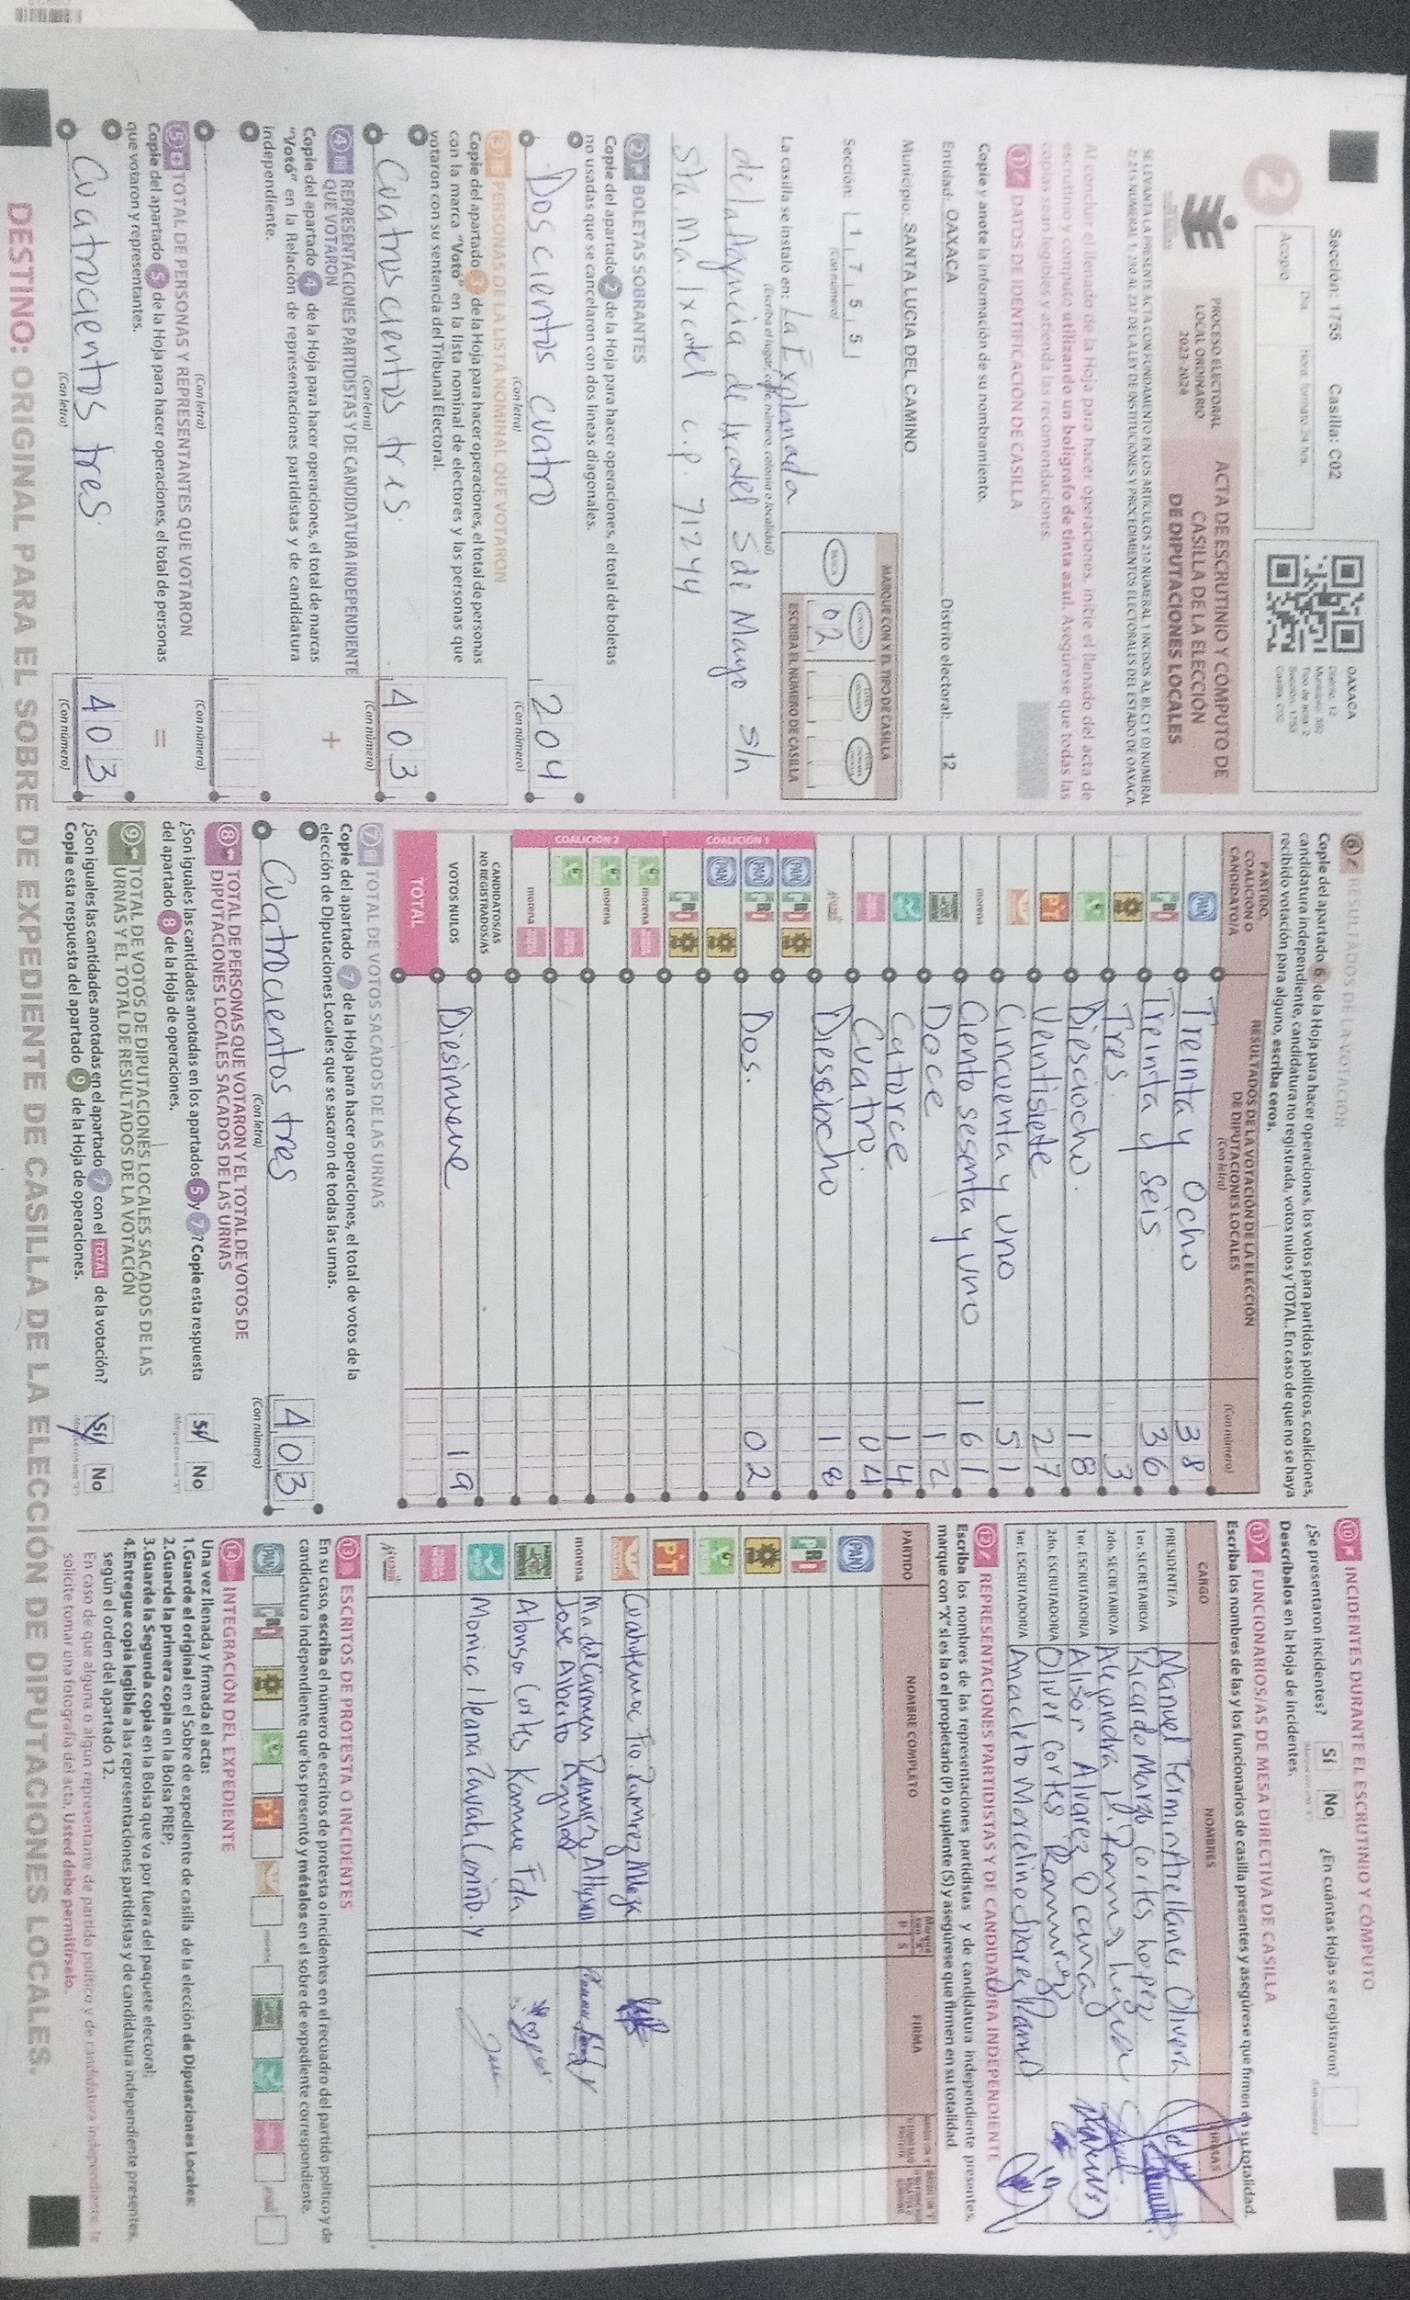 Sección: 1755 Casilla: C02
2
Acopio
Día
Hora
OAXACA
Distrito: 12
Tipo de acta: 2
Sección: 1755
Casilla: C02
PROCESO ELECTORAL
LOCAL ORDINARIO
2023-2024
ACTA DE ESCRUTINIO Y CÓMPUTO DE
CASILLA DE LA ELECCIÓN
DE DIPUTACIONES LOCALES
SE LEVANTA LA PRESENTE ACTA CON FUNDAMENTO EN LOS ARTÍCULOS 212 NUMERAL 1 INCISOS A), B), C) Y D) NUMERAL
2; 215 NUMERAL 1; 230 AL 237 DE LA LEY DE INSTITUCIONES Y PROCEDIMIENTOS ELECTORALES DEL ESTADO DE OAXACA.
Al concluir el llenado de la Hoja para hacer operaciones, inicie el llenado del acta de
escrutinio y cómputo utilizando un bolígrafo de tinta azul. Asegúrese que todas las
copias sean legibles y atienda las recomendaciones.
1 DATOS DE IDENTIFICACIÓN DE CASILLA
Copie y anote la información de su nombramiento.
Entidad: OAXACA Distrito electoral: 12
Municipio: SANTA LUCIA DEL CAMINO
Sección: 1 7 5 5
(Con número)
MARQUE CON X EL TIPO DE CASILLA
02
ESCRIBA EL NÚMERO DE CASILLA
La casilla se instaló en: La Explanada
(Escriba el lugar, calle, número, colonia o localidad)
de la Agncia de Ixcotel 5 de Mayo s/n
Sta. Ma. Ixcotel c.p. 71244
2 BOLETAS SOBRANTES
Copie del apartado 2 de la Hoja para hacer operaciones, el total de boletas
no usadas que se cancelaron con dos líneas diagonales.
Doscientos cuatro 204
(Con letra) (Con número)
3 PERSONAS DE LA LISTA NOMINAL QUE VOTARON
Copie del apartado 3 de la Hoja para hacer operaciones, el total de personas
con la marca "Votó" en la lista nominal de electores y las personas que
votaron con su sentencia del Tribunal Electoral.
Cuatroscientos tres. 403
(Con letra) (Con número)
4 REPRESENTACIONES PARTIDISTAS Y DE CANDIDATURA INDEPENDIENTE
QUE VOTARON
Copie del apartado 4 de la Hoja para hacer operaciones, el total de marcas
"Votó" en la Relación de representaciones partidistas y de candidatura
independiente.
+
(Con letra) (Con número)
5 TOTAL DE PERSONAS Y REPRESENTANTES QUE VOTARON
Copie del apartado 5 de la Hoja para hacer operaciones, el total de personas
que votaron y representantes.
=
Cuatrocientos tres. 403
(Con letra) (Con número)
6 RESULTADOS DE LA VOTACIÓN
Copie del apartado 6 de la Hoja para hacer operaciones, los votos para partidos políticos, coaliciones,
candidatura independiente, candidatura no registrada, votos nulos y TOTAL. En caso de que no se haya
recibido votación para alguno, escriba ceros.
PARTIDO,
COALICIÓN O
CANDIDATO/A
RESULTADOS DE LA VOTACIÓN DE LA ELECCIÓN
DE DIPUTACIONES LOCALES
(Con letra)
(Con número)
PAN Treinta y Ocho 38
PRI Treinta y Seis. 36
Tres. 3
Diesciocho. 18
PT Veintisiete 27
Cincuenta y uno 51
morena Ciento sesenta y uno 161
Doce 12
Catorce 14
Cuatro. 04
Diesciocho 18
COALICIÓN 1
PAN PRI
PAN PRI Dos. 02
PAN
PRI
COALICIÓN 2
morena
morena
morena
CANDIDATOS/AS
NO REGISTRADOS/AS
VOTOS NULOS Diesinueve 19
TOTAL
7 TOTAL DE VOTOS SACADOS DE LAS URNAS
Copie del apartado 7 de la Hoja para hacer operaciones, el total de votos de la
elección de Diputaciones Locales que se sacaron de todas las urnas.
Cuatrocientos tres 403
(Con letra) (Con número)
8 TOTAL DE PERSONAS QUE VOTARON Y EL TOTAL DE VOTOS DE
DIPUTACIONES LOCALES SACADOS DE LAS URNAS
¿Son iguales las cantidades anotadas en los apartados 5 y 7? Copie esta respuesta
del apartado 8 de la Hoja de operaciones.
Sí No
9 TOTAL DE VOTOS DE DIPUTACIONES LOCALES SACADOS DE LAS
URNAS Y EL TOTAL DE RESULTADOS DE LA VOTACIÓN
¿Son iguales las cantidades anotadas en el apartado 7 con el TOTAL de la votación?
Copie esta respuesta del apartado 9 de la Hoja de operaciones.
Sí No
10 INCIDENTES DURANTE EL ESCRUTINIO Y CÓMPUTO
¿Se presentaron incidentes? Sí No ¿En cuántas Hojas se registraron?
Descríbalos en la Hoja de incidentes.
11 FUNCIONARIOS/AS DE MESA DIRECTIVA DE CASILLA
Escriba los nombres de las y los funcionarios de casilla presentes y asegúrese que firmen en su totalidad.
CARGO NOMBRES FIRMAS
PRESIDENTE/A Manuel Fermin Arellanes Olivera
1er. SECRETARIO/A Ricardo Margo Cortes Lopez
2do. SECRETARIO/A Alejandra
1er. ESCRUTADOR/A Alisor Alvarez Ocaña
2do. ESCRUTADOR/A Oliver Cortes Ramirez
3er. ESCRUTADOR/A Anacleto Marcelino
12 REPRESENTACIONES PARTIDISTAS Y DE CANDIDATURA INDEPENDIENTE
Escriba los nombres de las representaciones partidistas y de candidatura independiente presentes,
marque con "X" si es la o el propietario (P) o suplente (S) y asegúrese que firmen en su totalidad.
PARTIDO NOMBRE COMPLETO P S FIRMA
PAN
PRI
PT
Cuauhtemoc Tio Ramirez Meza
morena Ma del Carmen Ramirez
Jose Alberto Aguilar
Alonso Cortes
Monica Ileana Zavala
13 ESCRITOS DE PROTESTA O INCIDENTES
En su caso, escriba el número de escritos de protesta o incidentes en el recuadro del partido político y de
candidatura independiente que los presentó y métalos en el sobre de expediente correspondiente.
PAN PRI PT morena
14 INTEGRACIÓN DEL EXPEDIENTE
Una vez llenada y firmada el acta:
1.Guarde el original en el Sobre de expediente de casilla de la elección de Diputaciones Locales;
2.Guarde la primera copia en la Bolsa PREP;
3.Guarde la Segunda copia en la Bolsa que va por fuera del paquete electoral;
4.Entregue copia legible a las representaciones partidistas y de candidatura independiente presentes,
según el orden del apartado 12.
En caso de que alguna o algún representante de partido político y de candidatura independiente, le
solicite tomar una fotografía del acta, Usted debe permitírselo.
DESTINO: ORIGINAL PARA EL SOBRE DE EXPEDIENTE DE CASILLA DE LA ELECCIÓN DE DIPUTACIONES LOCALES.